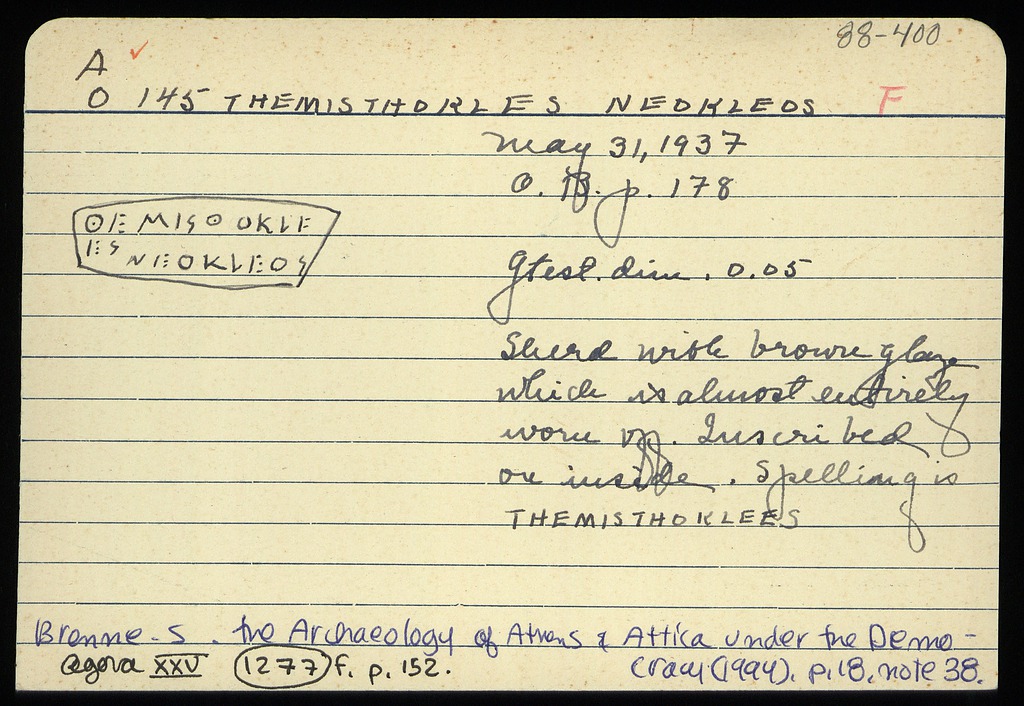 88-400
A ✓
O 145 THEMISTHOKLES NEOKLEOS F
May 31, 1937
O. B. p. 178
ΘEMISΘOKLE
ES NEOKLEOS
Gtest. dim. 0.05
Sherd with brown glaze
which is almost entirely
worn off. Inscribed
on inside. Spelling is
THEMISTHOKLEES
Bronne-S. the Archaeology of Athens & Attica under the Demo-
cracy (1994). p. 18, note 38.
Agora XXV 1277 f. p. 152.